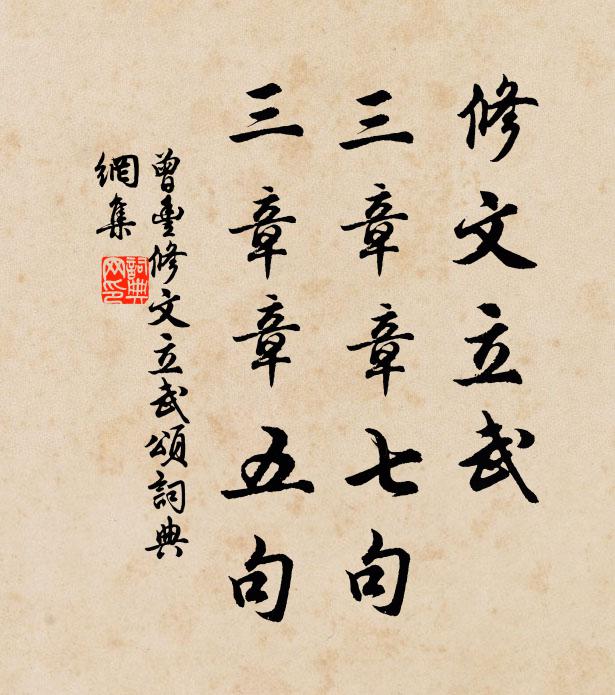 修文立武
三章章七句
三章章五句
曾豊修文立武頌詞典
網集
詞典
网印